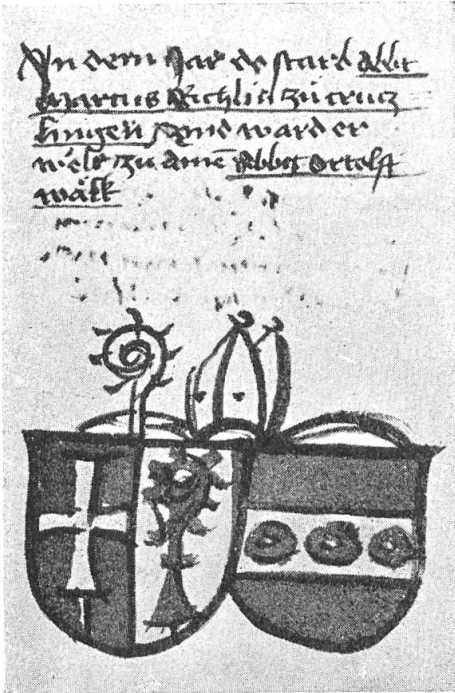 In dem Jar do starb Abbt
Marcus Richlin zu crucz
lingen vnd ward er
welt zu ainē Abbt ortolff
wält